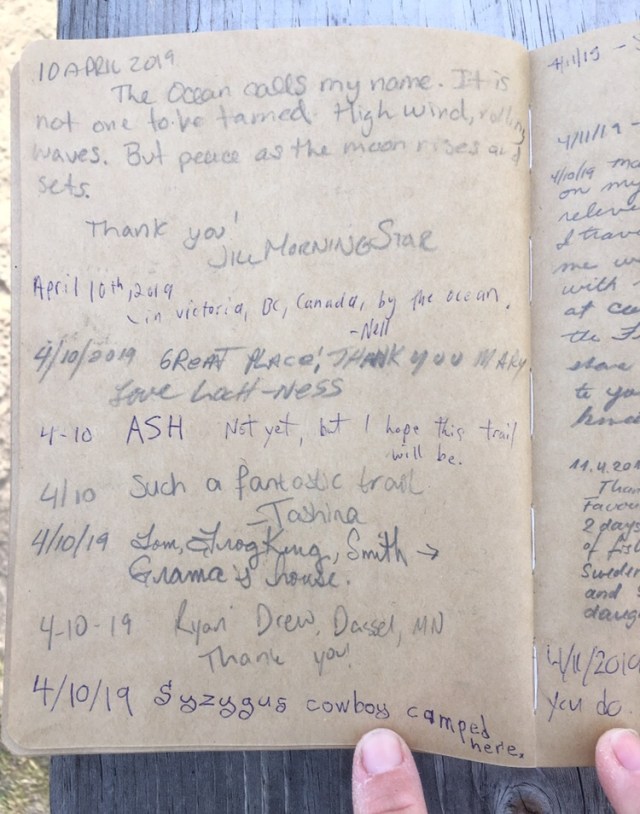 10 APRIL 2019
The Ocean calls my name. It is
not one to be tamed. High wind, rolling
waves. But peace as the moon rises and
sets.
Thank you!
Jill MorningStar
April 10th, 2019
in victoria, BC, Canada, by the ocean.
-Nell
4/10/2019 GREAT PLACE! THANK YOU MARY
Love Loch-Ness
4-10 ASH Not yet, but I hope this trail
will be.
4/10 Such a fantastic trail
-Tashina
4/10/19 Tom, Frog King, Smith →
Grama's house.
4-10-19 Ryan Drew, Dassel, MN
Thank you!
4/10/19 Syzygus cowboy camped
here.
4/11/19 -
4/11/19 -
4/10/19
on my
me
with
at
the
to
11.4.20
2 days
of
and
4/11/2019
you do.